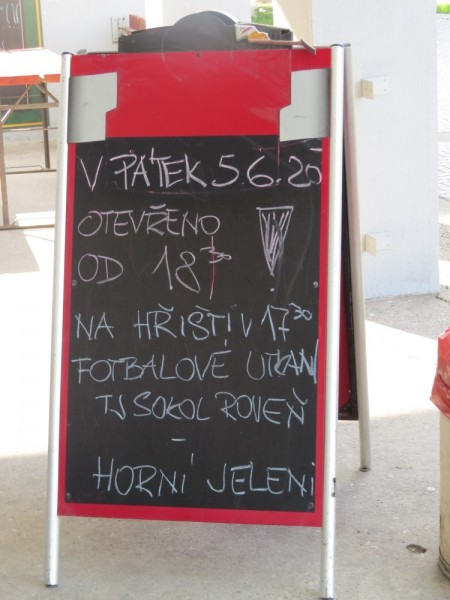 V PÁTEK 5.6.20
OTEVŘENO
OD 18³⁰ !
NA HŘIŠTI V 17³⁰
FOTBALOVÉ UTKÁNÍ
TJ SOKOL ROVEŇ
-
HORNÍ JELENÍ